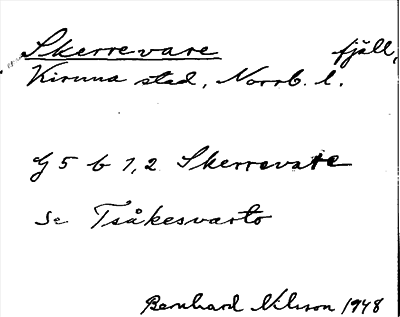 Skerrevare fjäll,
Kiruna stad, Norrb. l.
G 5 b 1,2 Skerrevare
Se Tsåkesvarto
Bernhard Nilsson 1948